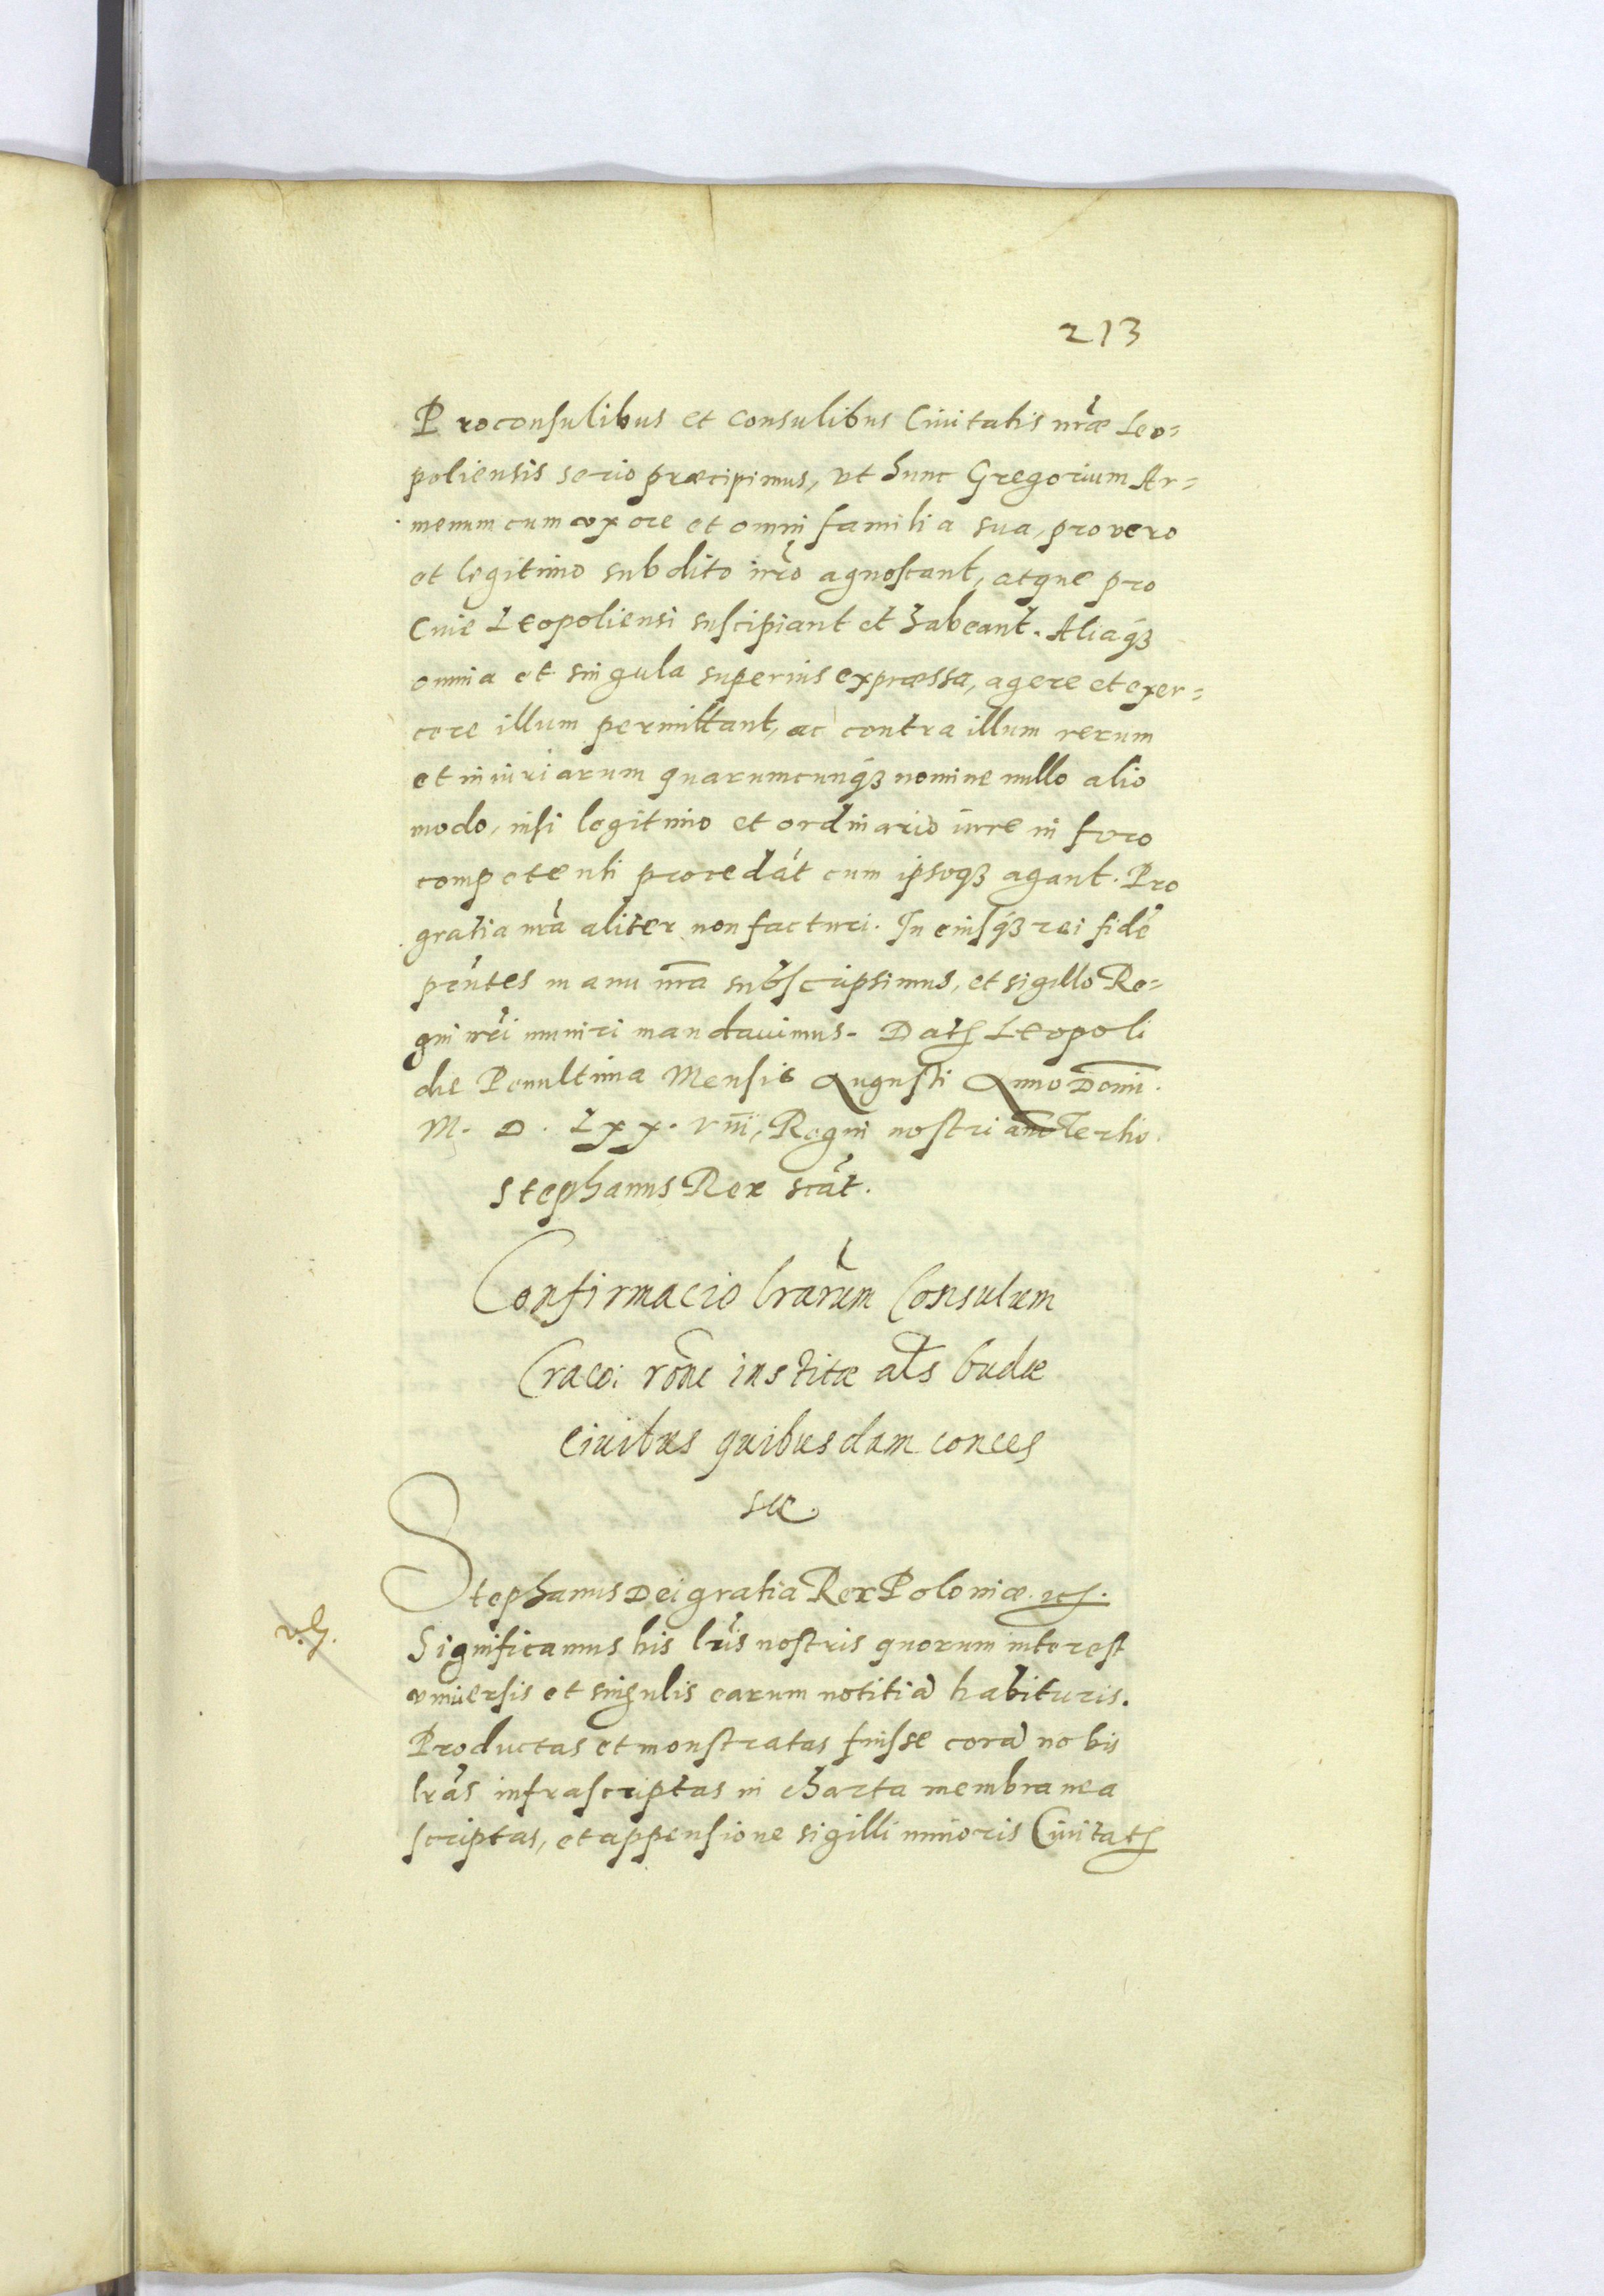 213
Proconsulibus et Consulibus Ciuitatis nr̃æ Leo=
poliensis serio præcipimus, vt hunc Gregorium Ar=
menum cum vxore et omni familia sua, pro vero
et legitimo subdito nr̃o agnoscant, atque pro
Ciue Leopoliensi suscipiant et habeant. Aliaq́ꝫ
omnia et singula superius expræssa, agere et exer=
cere illum permittant, ac contra illum rerum
et iniuriarum quarumcunq́ꝫ nomine nullo alio
modo, nisi legitimo et ordinario iure in foro
competenti procedãt cum ipsoqꝫ agant. Pro
gratia nr̃a aliter non facturi. In eiusq́ꝫ rei fidẽ
pñtes manu nr̃a subscripsimus, et sigillo Re=
gni nr̃i muniri mandauimus. Datꝭ Leopoli
die Penultima Mensis Augusti Anno Domi.
M. D. Lxx. viii, Regni nostri anõ Tertio.
Stephanus Rex scãt.
Confirmacio lr̃arum Consulum
Craco: rõne institæ als̃ budæ
ciuibus quibusdam conces
sæ.
Stephanus Dei gratia Rex Poloniæ. etc.
Significamus his lr̃is nostris quorum interest
vniuersis et singulis earum notitiã habituris.
Productas et monstratas fuisse corã nobis
lr̃as infrascriptas in charta membranea
scriptas, et appensione sigilli minoris Ciuitatꝭ